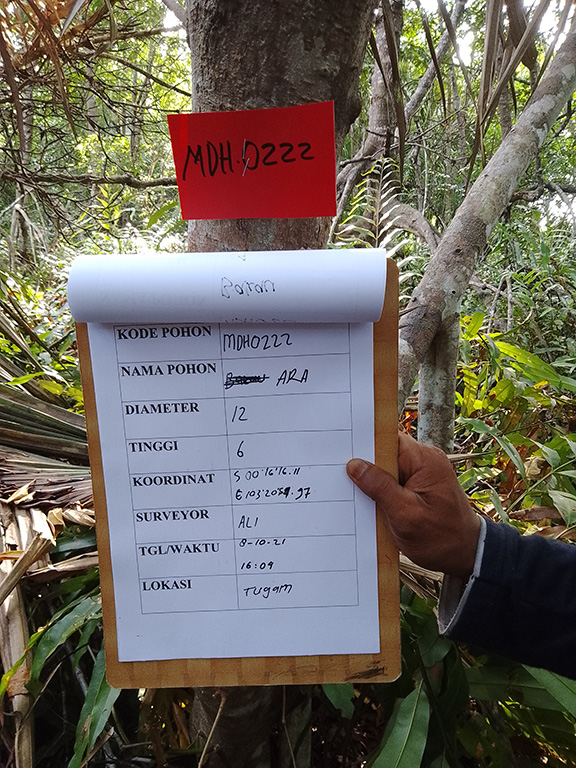 MDH.0222
KODE POHON MDH0222
NAMA POHON ARA
DIAMETER 12
TINGGI 6
KOORDINAT S 00'16'16.11
E 103'20
SURVEYOR ALI
TGL/WAKTU 8-10-21
16:09
LOKASI TUGAM